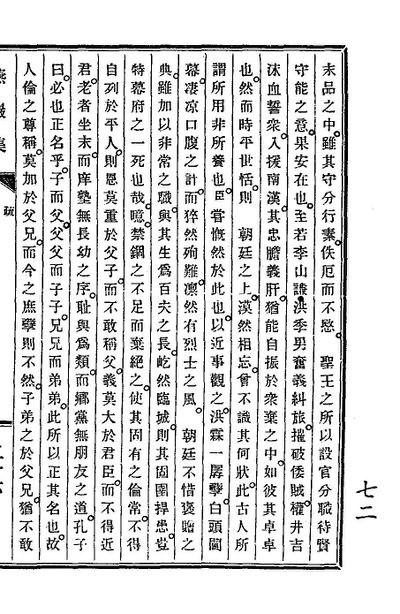 末品之中。雖其守分行素。佚厄而不愍。　聖王之所以設官分職待賢
守能之意。果安在也。至若李山謙洪季男奮義糾旅。摧破倭賊。權井吉
沫血誓衆。入援南漢。其忠膽義肝。猶能自振於衆棄之中。如彼其卓卓
也。然而時平世恬。則　朝廷之上。漠然相忘。曾不識其何狀。此古人所
謂所用非所養也。臣嘗慨然於此也。以近事觀之。洪霖一孱孼。白頭閫
幕。凄凉口腹之計。而猝然殉難。凜然有烈士之風。　朝廷不惜褒貤之
典。雖加以非常之職。與其生爲百夫之長。屹然臨城。則其固圉捍患。豈
特幕府之一死也哉。噫。禁錮之不足而棄絶之。使其固有之倫常。不得
自列於平人。則恩莫重於父子。而不敢稱父。義莫大於君臣。而不得近
君。老者坐末。而庠塾無長幼之序。恥與爲類。而鄕黨無朋友之道。孔子
曰。必也正名乎。子而父父。父而子子。兄兄而弟弟。此所以正其名也。故
人倫之尊稱。莫加於父兄。而今之庶孼則不然。子弟之於父兄。猶不敢
燕巖集
疏
七二